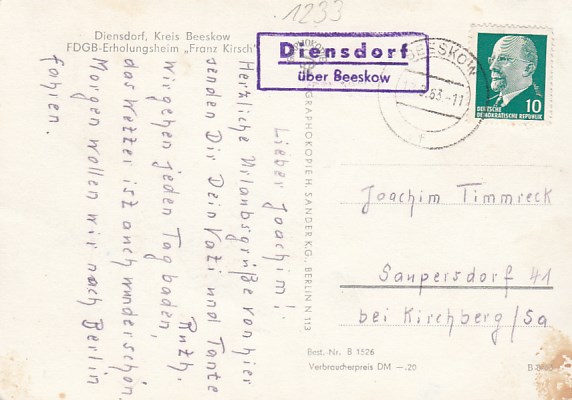 1233
Diensdorf, Kreis Beeskow
FDGB-Erholungsheim „Franz Kirsch“
Diensdorf
über Beeskow
BEESKOW
63.-11
10
DEUTSCHE
DEMOKRATISCHE REPUBLIK
Lieber Joachim!
Herzliche Urlaubsgrüße von hier
senden Dir Dein Vati und Tante
Ruth.
Wir gehen jeden Tag baden,
das Wetter ist auch wunderschön.
Morgen wollen wir nach Berlin
fahren.
GRAPHOKOPIE H. SANDER K.G., BERLIN N 113
Joachim Timmreck
Saupersdorf 41
bei Kirchberg/Sa
Best.-Nr. B 1526
Verbraucherpreis DM —.20